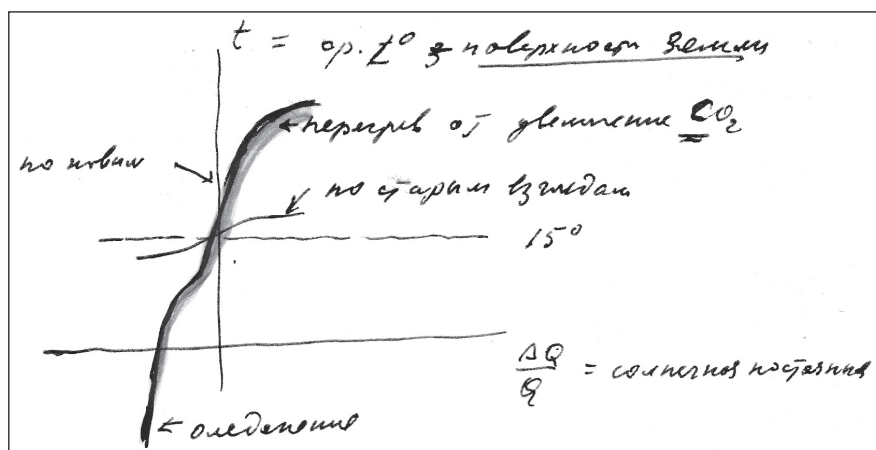 t = ср. t° з поверхности Земли
← перегрев от увеличение CO₂
по новым
по старым взглядам
15°
ΔQ/Q = солнечная постоянная
← оледенение